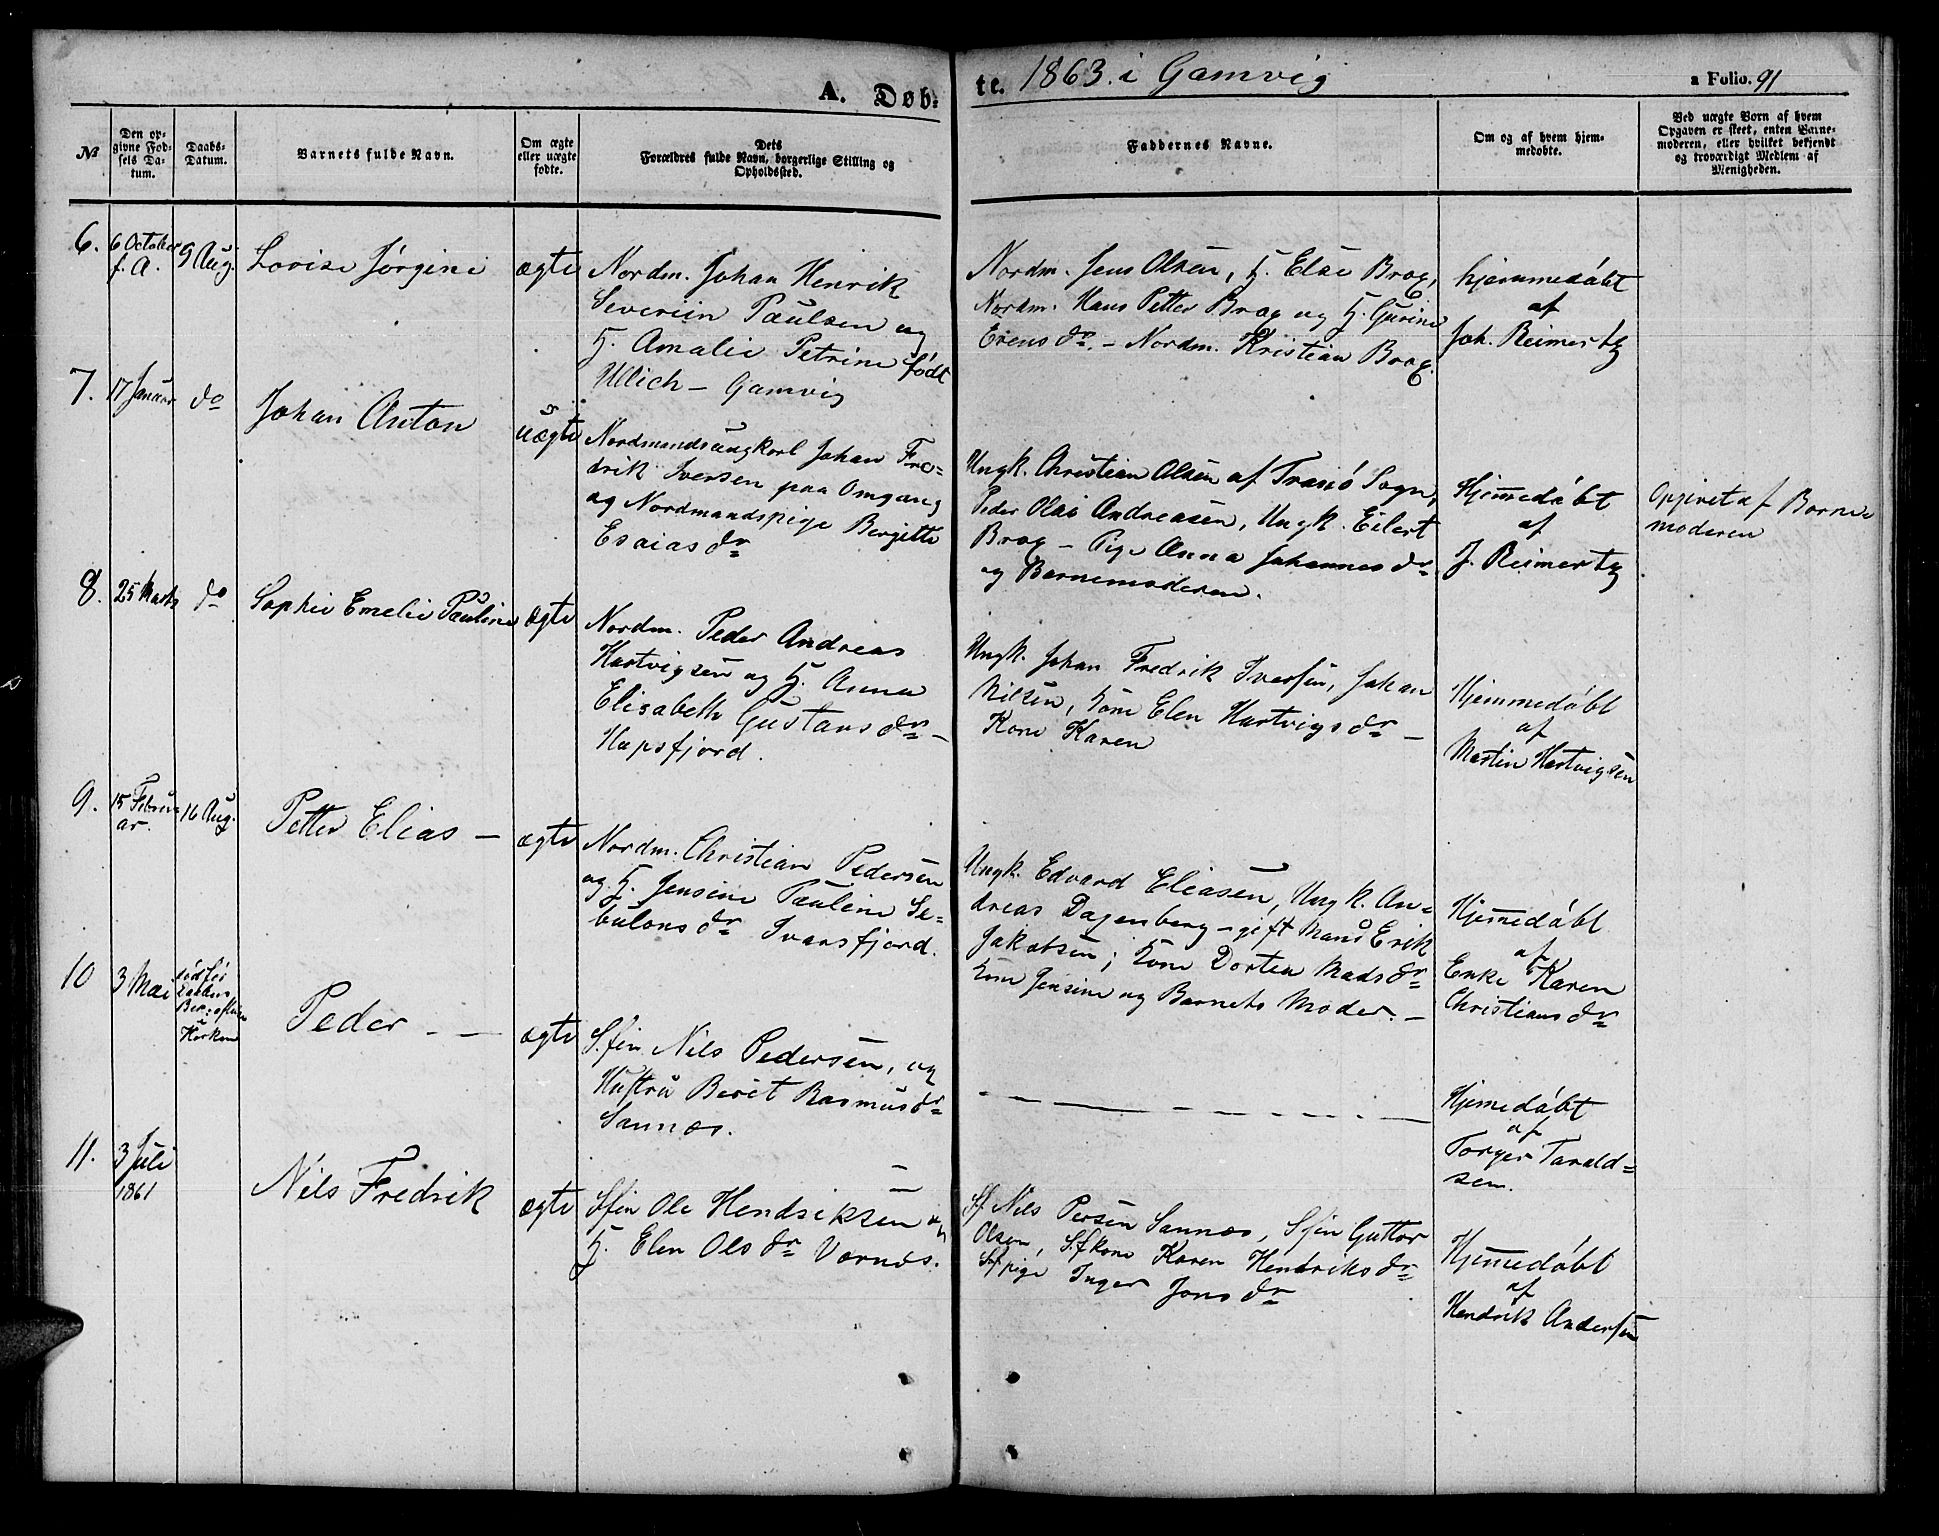 A. Døb-
te. 1863. i Gamvig
a Folio. 91
No
Den op-
givne Fød-
sels Da-
tum.
Daabs-
Datum.
Barnets fulde Navn.
Om ægte
eller uægte
fødte.
Dets
Forældres fulde Navn, borgerlige Stilling og
Opholdssted.
Faddernes Navne.
Om og af hvem hjem-
medøbte.
Ved uægte Børn af hvem
Opgaven er skeet, enten Barne-
moderen, eller hvilket bekjendt
og troværdigt Medlem af
Menigheden.
6.
6 October
f. A.
9 Aug.
Lovise Jørgine
ægte
Nordm. Johan Henrik
Severiin Paulsen og
H. Amalie Petrine født
Ullich - Gamvig
Nordm. Jens Olsen, H. Else Brox,
Nordm. Hans Petter Brox og H. Gurine
Erensdr. - Nordm. Kristian Brox.
hjemmedøbt
af
Joh. Reimertz
7.
17 Januar
do
Johan Anton
uægte
Nordmandsungkarl Johan Fre-
drik Iversen paa Omgang
og Nordmandspige Bergitte
Esaiasdr
Ungk. Christian Olsen af Tranö Sogn,
Peder Olai Andreasen, Ungk. Eilert
Brox - Pige Anna Johannesdr
og Barnemoderen.
Hjemedøbt
af
J. Reimertz
Opgivet af Barne
moderen
8.
25 Marts
do
Sophie Emelie Pauline
ægte
Nordm. Peder Andreas
Hartvigsen og H. Anna
Elisabeth Gustavsdr -
Hopsfjord.
Ungk. Johan Fredrik Iversen, Johan
Nilsen, Kone Elen Hartvigsdr -
Kone Karen
Hjemmedøbt
af
Martin Hartvigsen
9.
15 Febru-
ar.
16 Aug.
Petter Elias -
ægte
Nordm. Christian Pedersen
og H. Jensine Pauline Se-
bulonsdr Ivarsfjord.
Ungk. Edvard Eliasen, Ungk. An-
dreas Dagenberg - gift Mand Erik
Jakobsen; Kone Dorten Madsdr
Kone Jensine og Barnets Moder. -
Hjemedøbt
af
Enke Karen
Christiansdr
10
3 Mai
død før
Peder - -
ægte
S.fin Nils Pedersen, og
Hustru Beret Rasmusdr
Sannæs.
Hjemedøbt
af
Torger Tarald-
sen.
11.
3 Juli
1861
Nils Fredrik
ægte
S.fin Ole Hendriksen og
H. Elen Olsdr Vornæs.
Sf Nils Persen Sannæs, S.fin Guttor
Olsen, S.fkone Karen Henriksdr
Sfpige Inger Jonsdr
Hjemedøbt
af
Hendrik Andersen